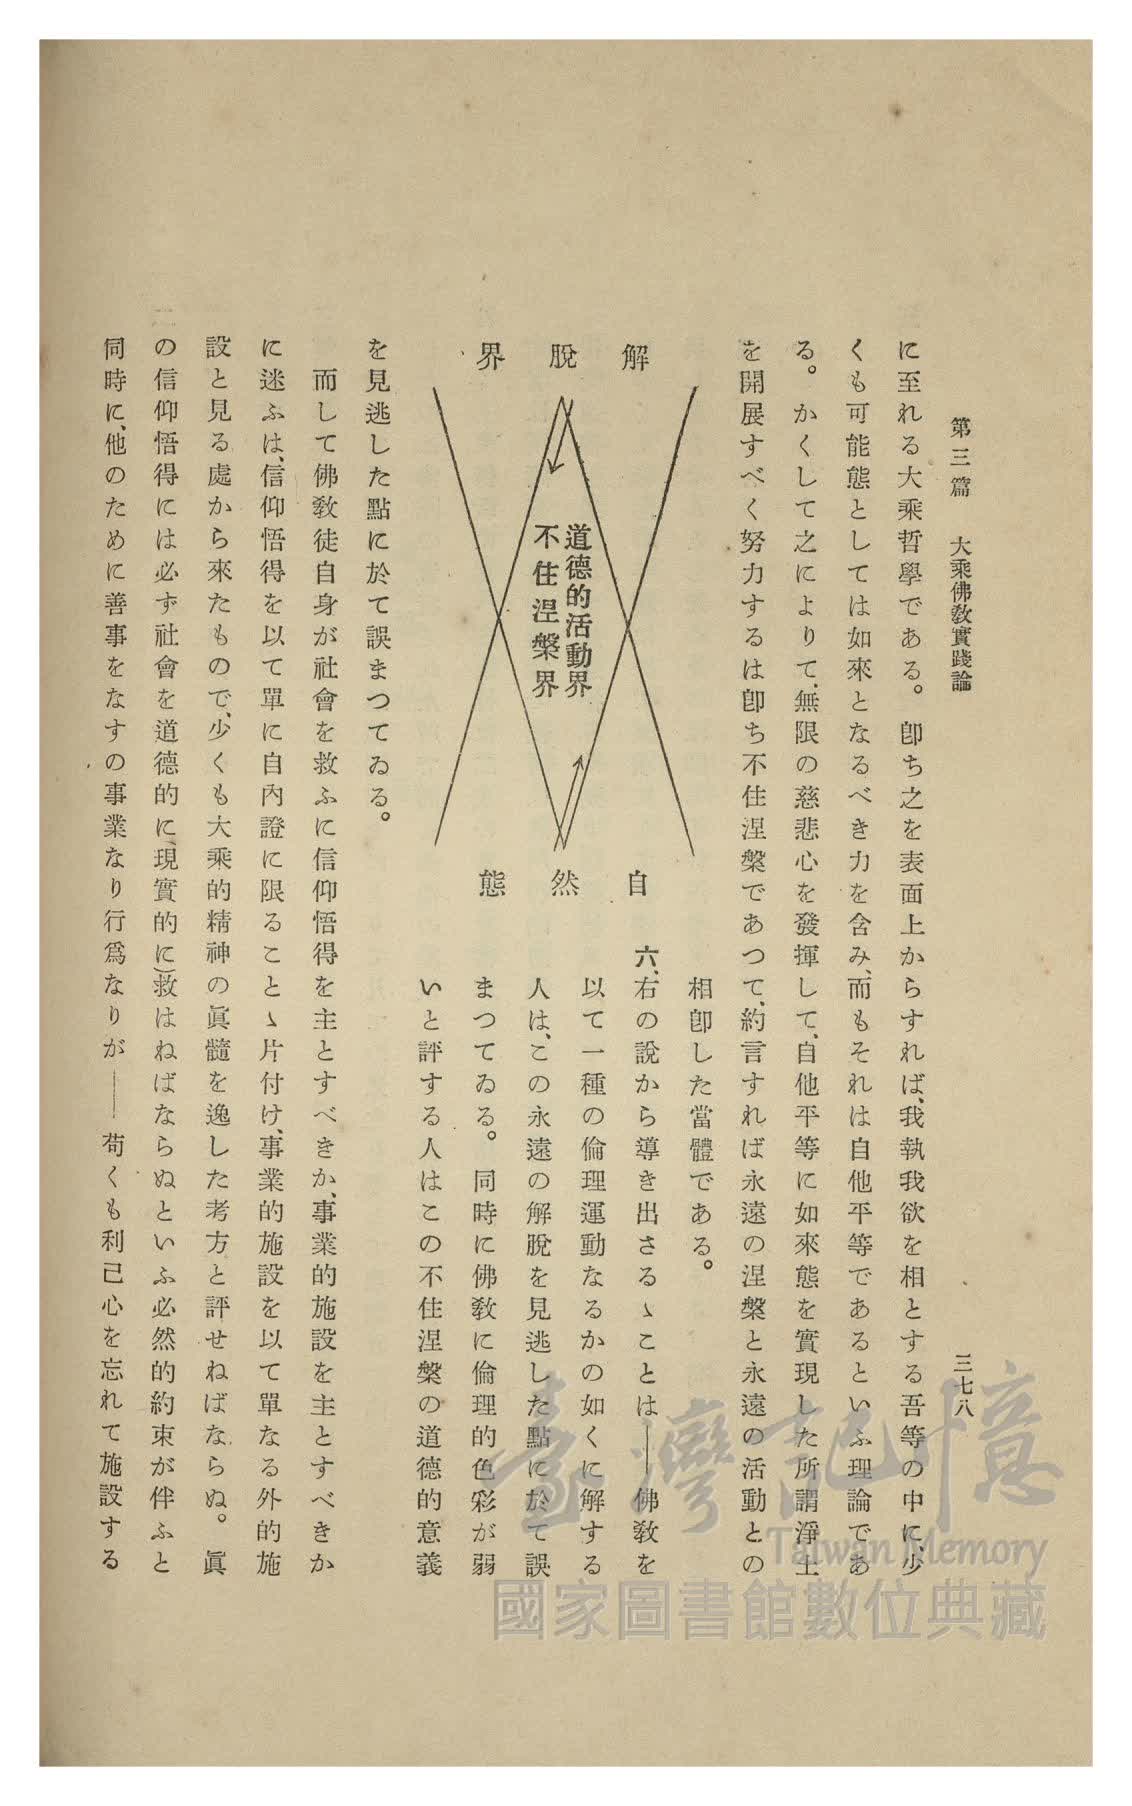 第三篇　大乘佛教實踐論
三七八
に至れる大乘哲學である。卽ち之を表面上からすれば、我執我欲を相とする吾等の中に、少
くも可能態としては如來となるべき力を含み、而もそれは自他平等であるといふ理論であ
る。かくして之によりて、無限の慈悲心を發揮して、自他平等に如來態を實現した所謂淨土
を開展すべく努力するは卽ち不住涅槃であつて、約言すれば永遠の涅槃と永遠の活動との
相卽した當體である。
解脫界
道德的活動界
不住涅槃界
自然態
六、右の說から導き出さるゝことは――佛教を
以て一種の倫理運動なるかの如くに解する
人は、この永遠の解脫を見逃した點に於て誤
まつてゐる。同時に佛教に倫理的色彩が弱
いと評する人はこの不住涅槃の道德的意義
を見逃した點に於て誤まつてゐる。
而して佛教徒自身が社會を救ふに信仰悟得を主とすべきか、事業的施設を主とすべきか
に迷ふは、信仰悟得を以て單に自內證に限ることゝ片付け、事業的施設を以て單なる外的施
設と見る處から來たもので、少くも大乘的精神の眞髓を逸した考方と評せねばならぬ。眞
の信仰悟得には必ず社會を道德的に、現實的に)救はねばならぬといふ必然的約束が伴ふと
同時に、他のために善事をなすの事業なり行爲なりが――苟くも利己心を忘れて施設する
臺灣記憶
Taiwan Memory
國家圖書館數位典藏